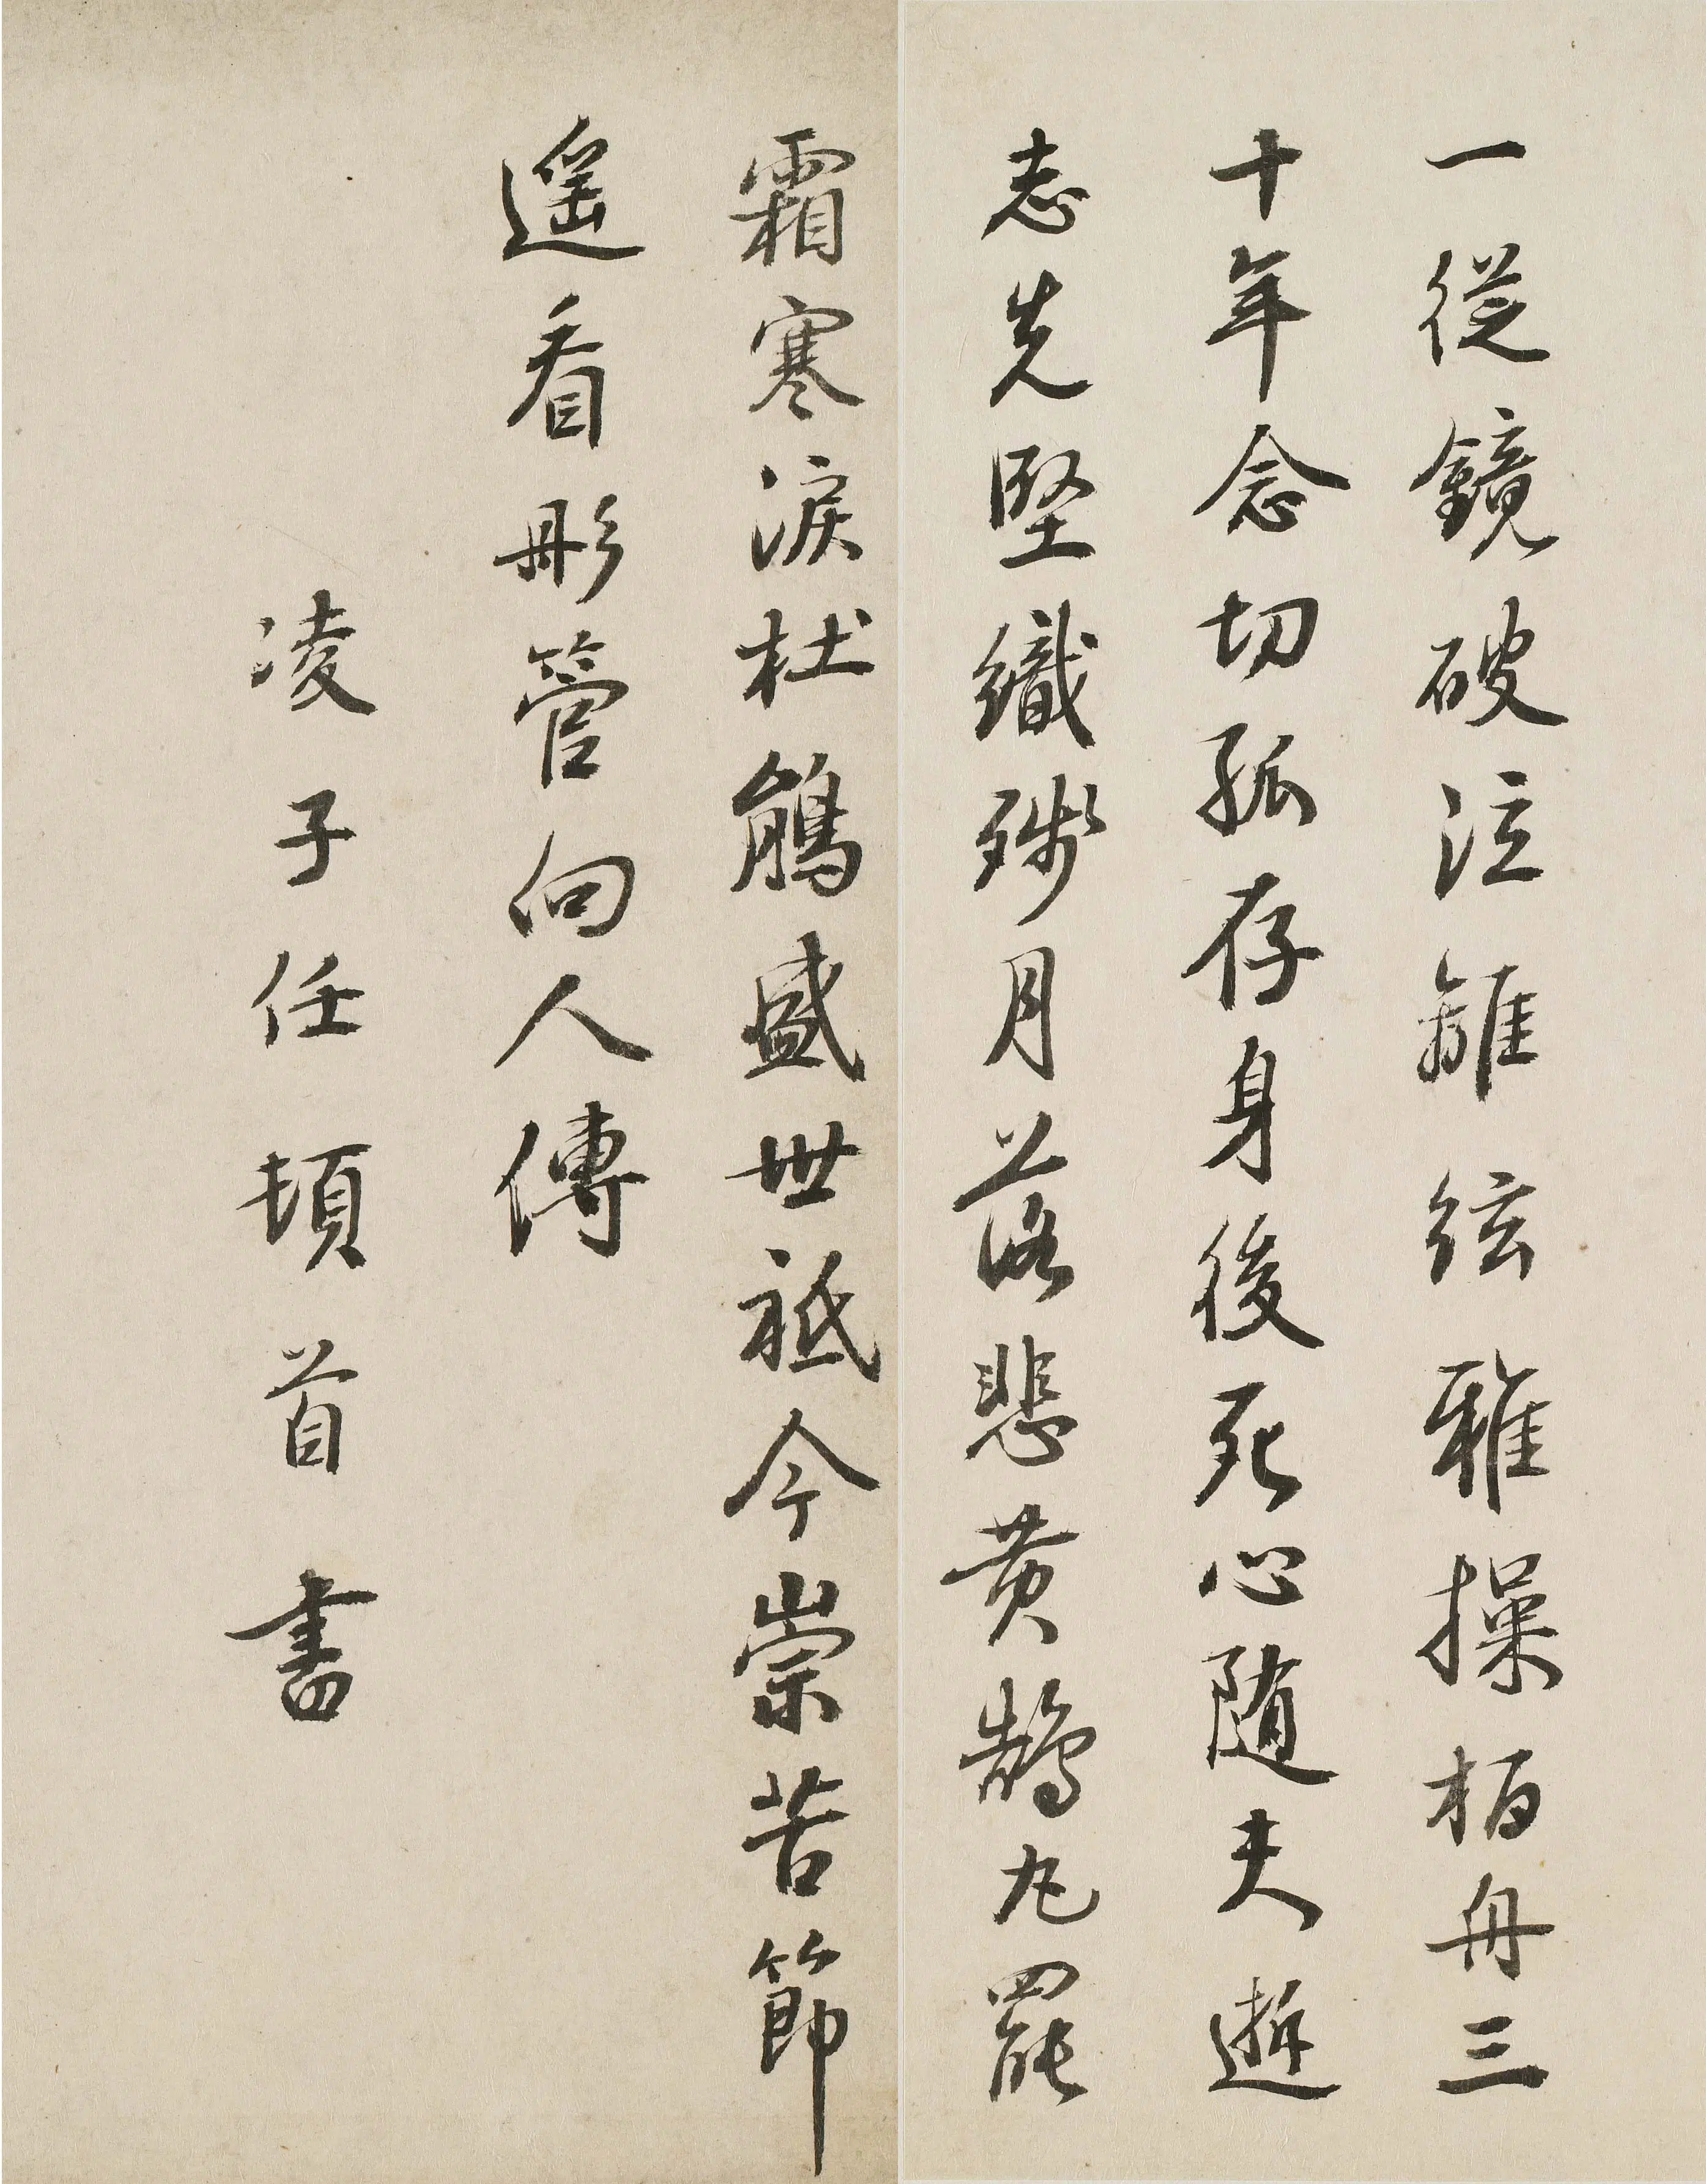 一從鏡破泣離絃雅操栢舟三
十年念切孤存身後死心随夫逝
志先堅織殘月落悲黄鵠丸罷
霜寒淚杜鵑盛世祗今崇苦節
遥看彤管向人傳
凌子任頓首書